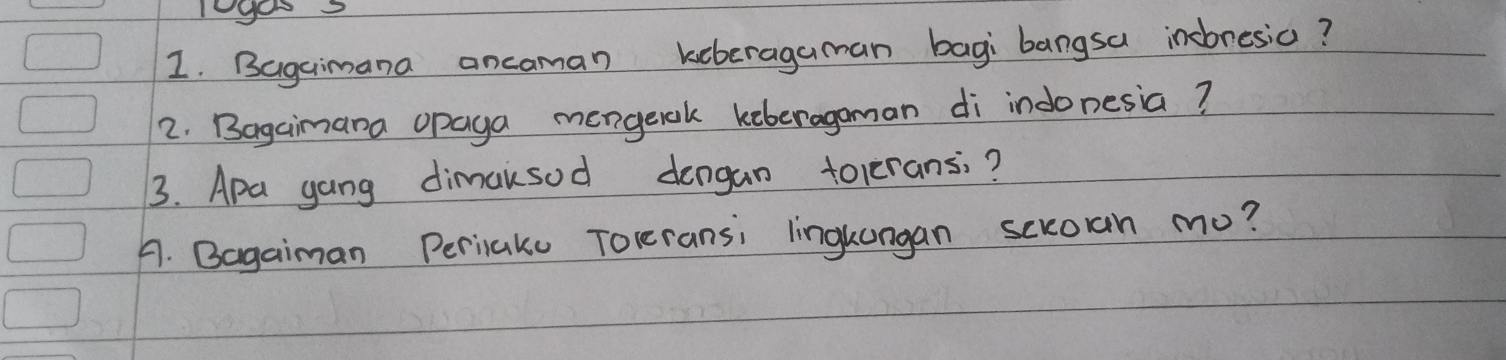 Tugas 3
1. Bagaimana ancaman keberagaman bagi bangsa indonesia?
2. Bagaimana upaya mengelak keberagaman di indonesia?
3. Apa yang dimaksud dengan toleransi?
4. Bagaiman Perilaku Toleransi lingkungan sekolah mu?